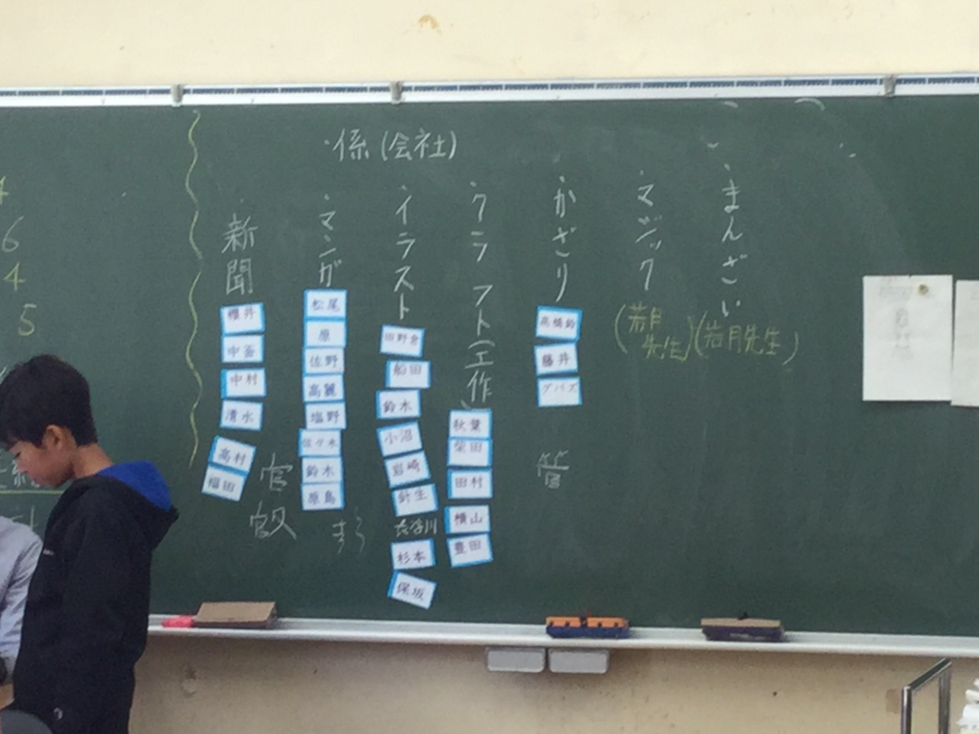 ・係(会社)
・新聞
櫻井
中畜
中村
清水
高村
福田
・マンガ
松尾
原
佐野
高麗
塩野
佐々木
鈴木
原島
・イラスト
田野倉
船田
鈴木
小沼
岩崎
針生
長谷川
杉本
保坂
・クラフト(工作)
秋葉
柴田
田村
横山
豊田
・かざり
高橋鈴
藤井
・マジック
(若月先生)
・まんざい
(若月先生)
6
4
5